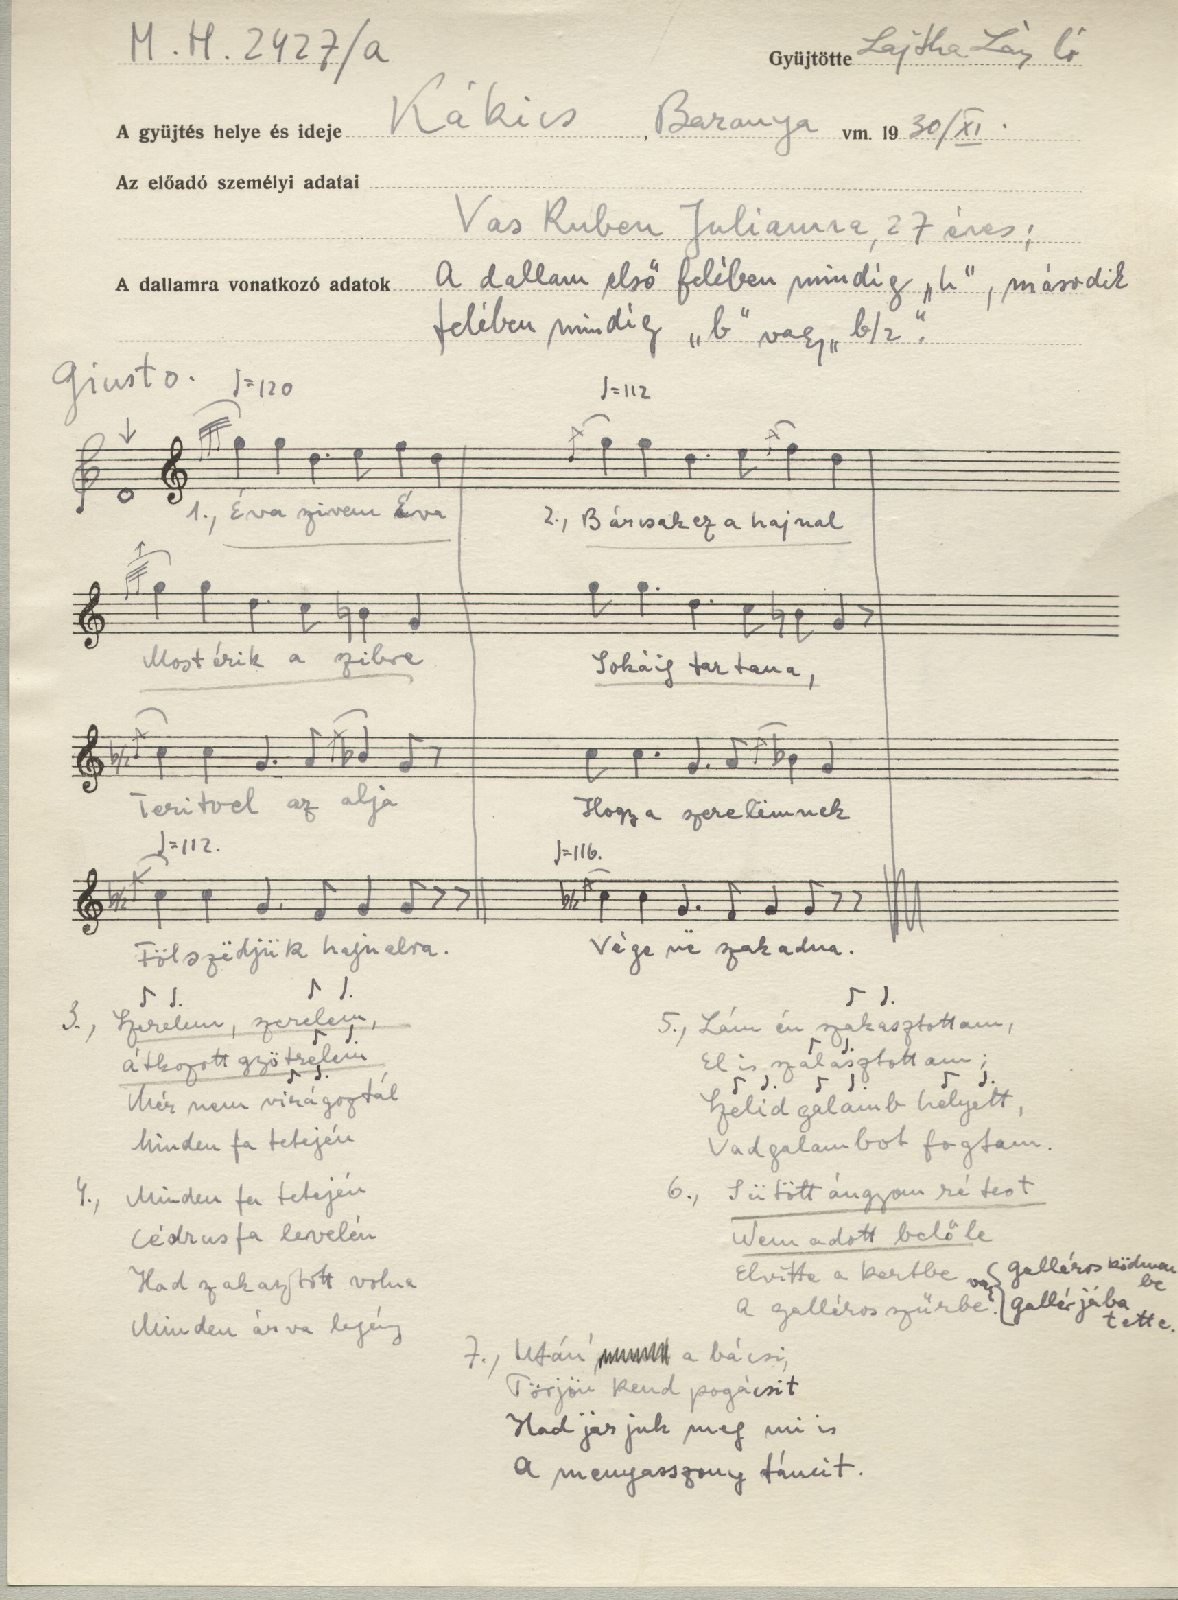 M.H. 2427/a
Gyüjtötte Lajtha László
A gyüjtés helye és ideje Kákics, Baranya vm. 1930/XI.
Az előadó személyi adatai
Vas Ruben Julianna, 27 éves;
A dallamra vonatkozó adatok A dallam első felében mindíg „h”, második
felében mindíg „b” vagy „b/2”.
Giusto. ♩=120 ♩=112
1., Éva szivem Éva 2., Bárcsak ez a hajnal
Most érik a szilva Sokáig tartana,
Teritvel az alja Hogy a szerelimnek
♩=112. ♩=116.
Fölszëdjük hajnalra. Vége në szakadna.
3., Szerelem, szerelem,
átkozott gyötrelem
Mér nem virágoztál
Minden fa tetején
4., Minden fa tetején
Cédrusfa levelén
Had szakasztott volna
Minden árva legény
5., Lám én szakasztottam,
El is szalasztottam;
Szelid galamb helyett,
Vadgalambot fogtam.
6., Sütött ángyom rétest
Nem adott belőle
Elvitte a kertbe vagy galléros ködmenbe
A galléros szűrbe. gallérjába tette.
7., Után a bácsi,
Törjön kend pogácsit
Had járjuk meg mi is
A menyasszony táncit.